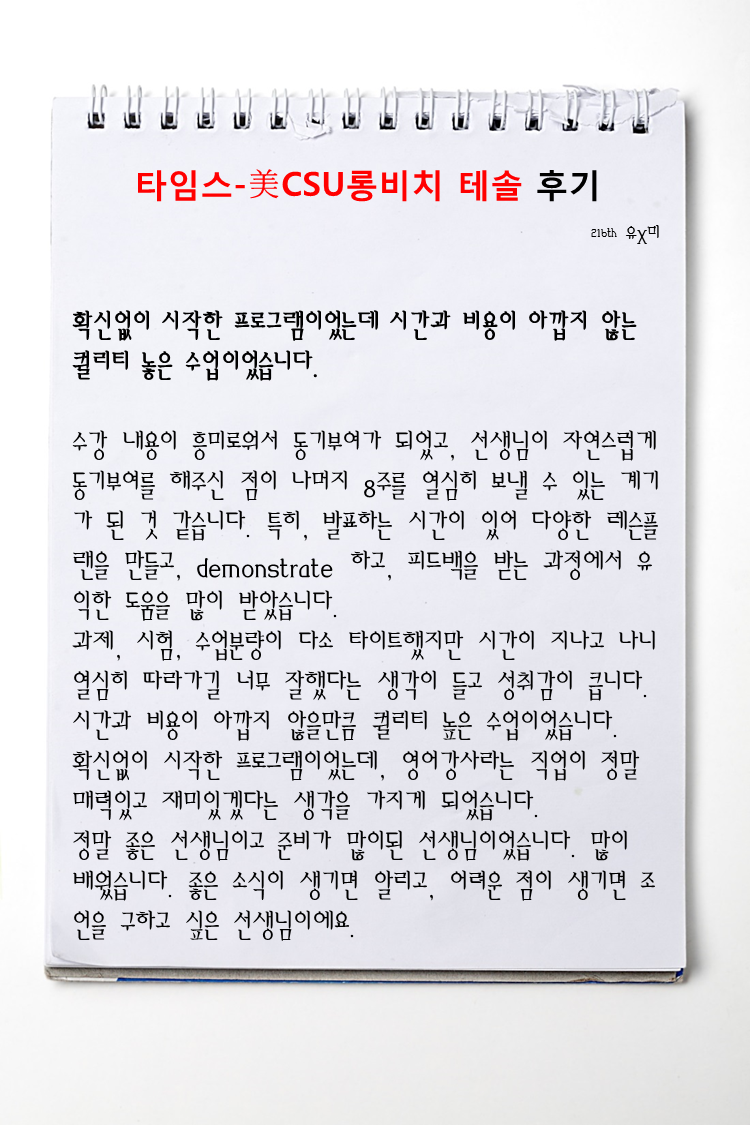 타임스-美CSU롱비치 테솔 후기
216th 유X미
확신없이 시작한 프로그램이었는데 시간과 비용이 아깝지 않는
퀄리티 높은 수업이었습니다.
수강 내용이 흥미로워서 동기부여가 되었고, 선생님이 자연스럽게
동기부여를 해주신 점이 나머지 8주를 열심히 보낼 수 있는 계기
가 된 것 같습니다. 특히, 발표하는 시간이 있어 다양한 레슨플
랜을 만들고, demonstrate 하고, 피드백을 받는 과정에서 유
익한 도움을 많이 받았습니다.
과제, 시험, 수업분량이 다소 타이트했지만 시간이 지나고 나니
열심히 따라가길 너무 잘했다는 생각이 들고 성취감이 큽니다.
시간과 비용이 아깝지 않을만큼 퀄리티 높은 수업이었습니다.
확신없이 시작한 프로그램이었는데, 영어강사라는 직업이 정말
매력있고 재미있겠다는 생각을 가지게 되었습니다.
정말 좋은 선생님이고 준비가 많이된 선생님이었습니다. 많이
배웠습니다. 좋은 소식이 생기면 알리고, 어려운 점이 생기면 조
언을 구하고 싶은 선생님이에요.